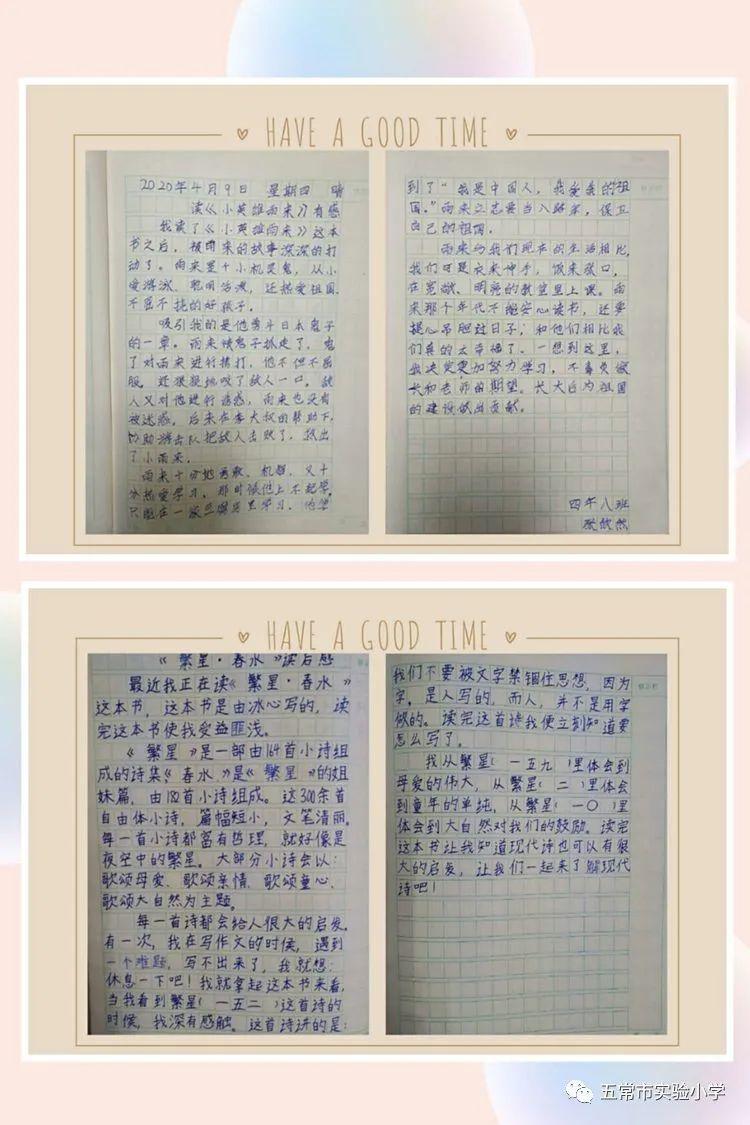 HAVE A GOOD TIME
2020年4月9日 星期四 晴
读《小英雄雨来》有感
我读了《小英雄雨来》这本
书之后，被雨来的故事深深的打
动了。雨来是个小机灵鬼，从小
爱游泳、聪明活泼，还热爱祖国、
不屈不挠的好孩子。
吸引我的是他勇斗日本鬼子
的一章。雨来被鬼子抓走了，鬼
了对雨来进行拷打，他不但不屈
服，还狠狠地咬了敌人一口。敌
人又对他进行诱惑，雨来也没有
被迷惑，后来在李大叔的帮助下，
协助游击队把敌人击败了，救出
了小雨来。
雨来十分地勇敢、机智，又十
分热爱学习，那时候他上不起学，
只能在一家三 房里学习。他学
到了“我是中国人，我爱我的祖
国。”雨来立志要当八路军，保卫
自己的祖国。
雨来与我们现在的生活相比，
我们可是衣来伸手，饭来张口，
在宽敞、明亮的教室里上课。雨
来那个年代不能安心读书，还要
提心吊胆过日子；和他们相比我
们真的太幸福了。一想到这里，
我决定要加努力学习，不辜负家
长和老师的期望。长大后为祖国
的建设做出贡献。
四年八班
张欣然
HAVE A GOOD TIME
《繁星·春水》读后感
最近我正在读《繁星·春水》
这本书，这本书是由冰心写的，读
完这本书使我受益匪浅。
《繁星》是一部由164首小诗组
成的诗集《春水》是《繁星》的姐
妹篇，由182首小诗组成。这300余首
自由体小诗，篇幅短小，文笔清丽。
每一首小诗都富有哲理，就好像是
夜空中的繁星。大部分小诗会以：
歌颂母爱、歌颂亲情、歌颂童心、
歌颂大自然为主题。
每一首诗都会给人很大的启发。
有一次，我在写作文的时候，遇到
一个难题，写不出来了，我就想：
休息一下吧！我就拿起这本书来看，
当我看到繁星（一五二）这首诗的
时候，我深有感触。这首诗讲的是：
我们不要被文字禁锢住思想，因为
字，是人写的，而人，并不是用字
做的。读完这首诗我便立刻知道要
怎么写了。
我从繁星（一五九）里体会到
母爱的伟大，从繁星（二）里体会
到童年的单纯，从繁星（一〇）里
体会到大自然对我们的鼓励。读完
这本书让我知道现代诗也可以有很
大的启发，让我们一起来了解现代
诗吧！
五常市实验小学